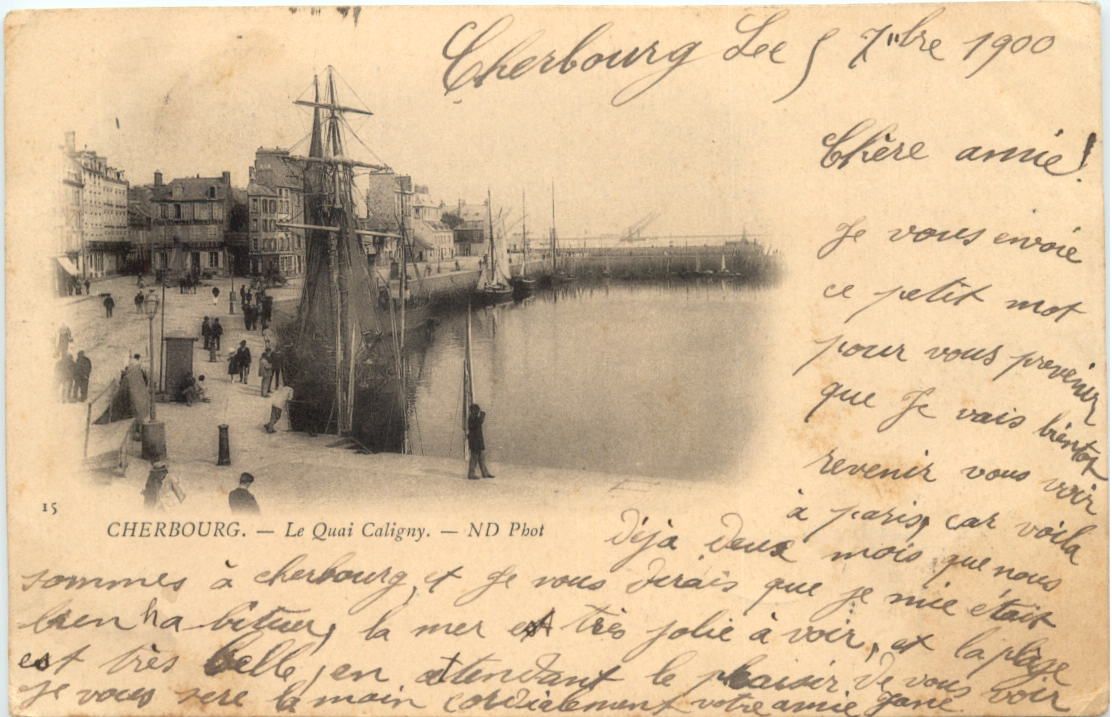 Cherbourg Le 5 7bre 1900
Chère amie!
Je vous envoie
ce petit mot
pour vous prevenir
que Je vais bientot
revenir vous voir
à paris, car voila
déja deux mois que nous
sommes à cherbourg, et Je vous dirais que je mie était
bien habituer, la mer est très jolie à voir, et la plage
est très belle, en attendant le plaisir de vous voir
Je vous sere la main cordialement votre amie
15
CHERBOURG. — Le Quai Caligny. — ND Phot